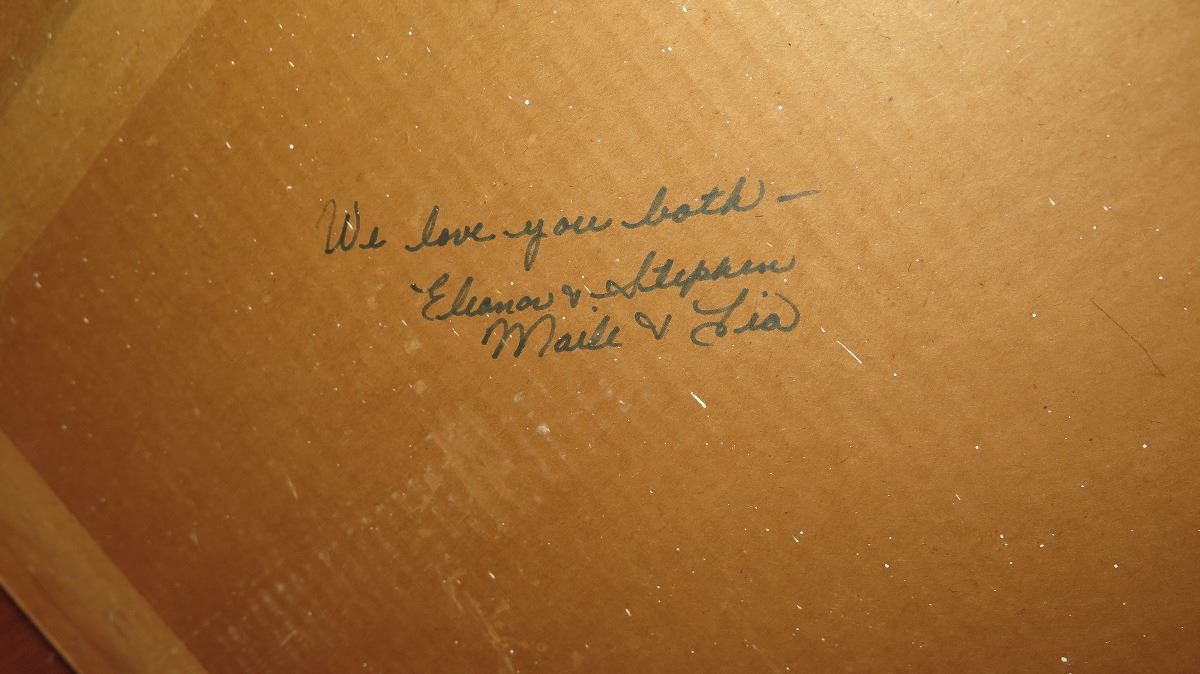 We love you both —
Eleanor & Stephen
Maile & Lia